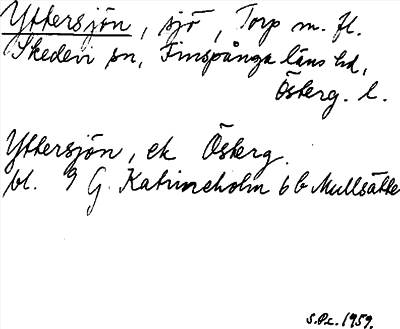 Yttersjön, sjö, Torp m. fl.
Skedevi sn, Finspånga läns hd,
Österg. l.
Yttersjön, ek Österg.
bl. 9 G. Katrineholm 6 b Mullsätte
S.P.c. 1959.